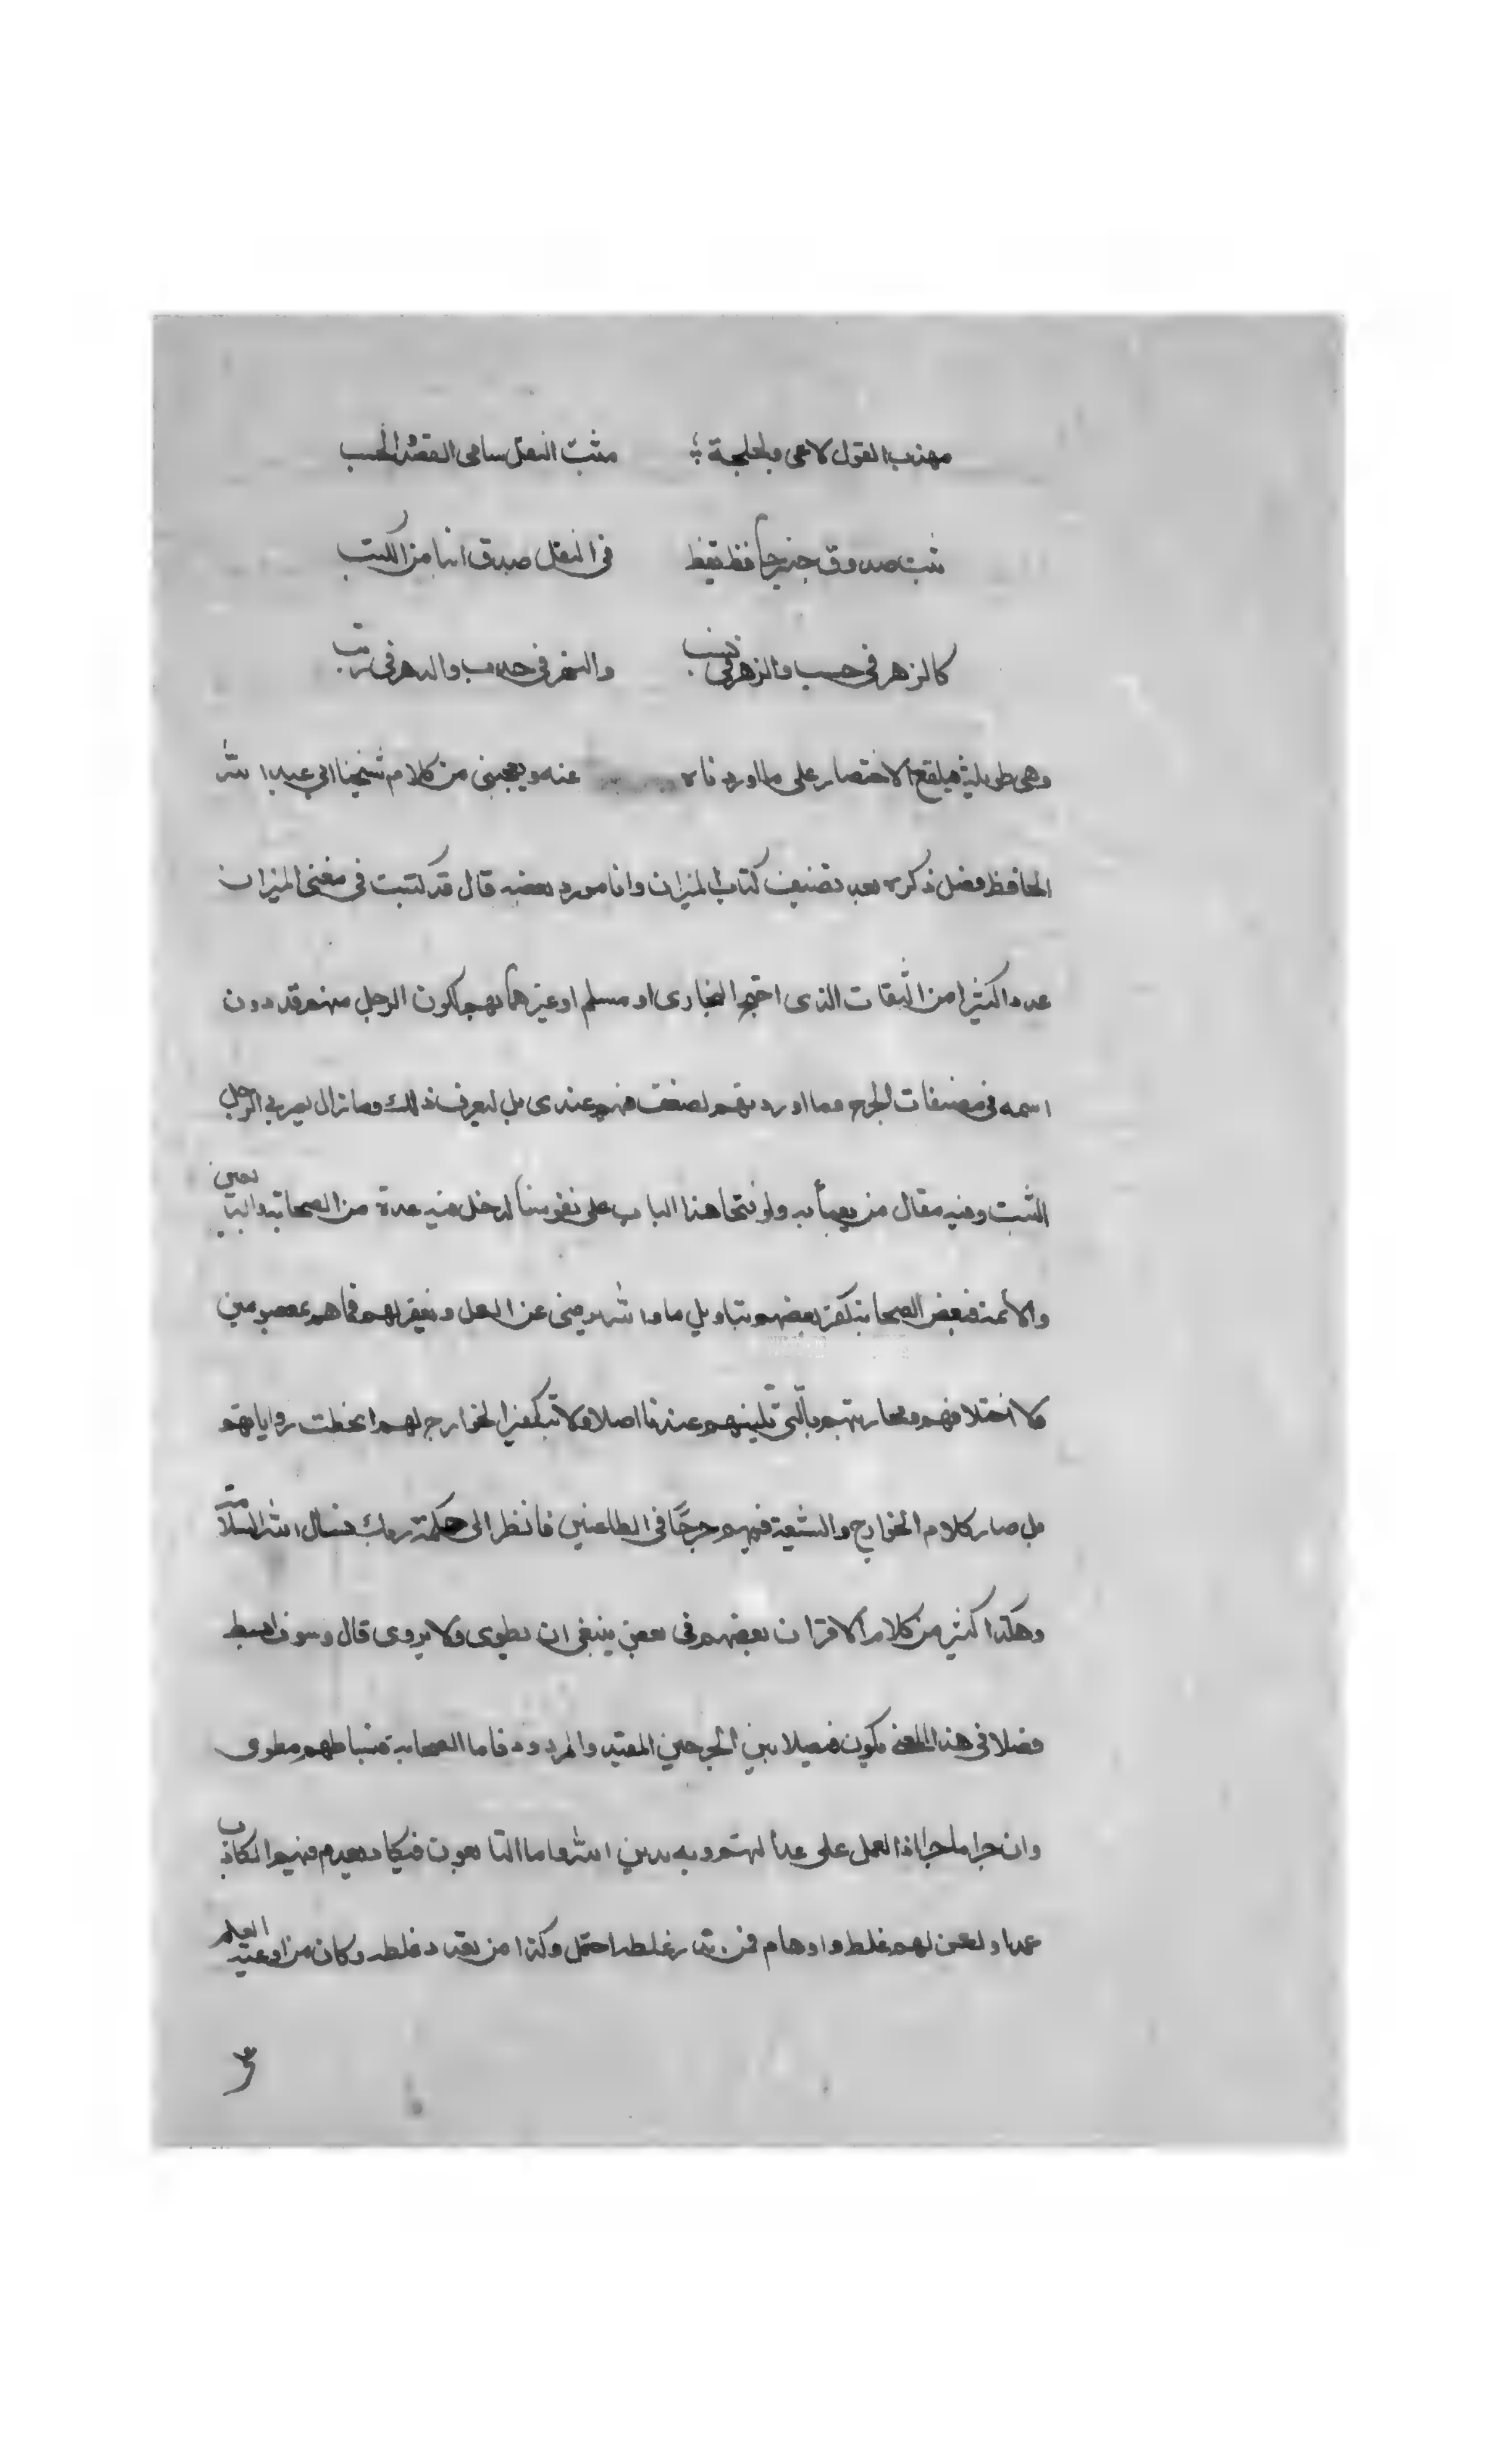 مهذب القول لا عى ولجلجة مثبت النقل سامى القصد والحسب
ثبت صدوق خبير حافظ يقظ فى النقل صدق انباء من الكتب
كالزهر فى حسب والزهر فى نسب والنهر فى حدب والدهر فى رتب
وهى طويلة الاختصار على ما اوردناه عنه ويعجبنى من كلام شيخنا ابى عبد الله
الحافظ فصل ذكره بعد تصنيف كتاب الميزان وانا مورد بعضه قال قد كتبت فى مغنى الميزان
عددا كثيرا من الثقات الذى احتج البخارى او مسلم او غيرهما بهم لكون الرجل منهم قد دون
اسمه فى مصنفات الجرح وما اوردتهم لضعف فيهم عندى بل ليعرف ذلك وما زال يمر بى الرجل
الثبت وفيه مقال من يعبأ به ولو فتحنا هذا الباب على نفوسنا لدخل فيه عدة من الصحابة والتابعين
والائمة فبعض الصحابة كفر بعضهم بتاويل ما والله يرضى عن الكل ويغفر لهم فما هم بمعصومين
ولا اختلافهم ومحاربتهم بالتى تلينهم عندنا اصلا ولا بتكفير الخوارج لهم انحطت رواياتهم
بل صار كلام الخوارج والشيعة فيهم جرحًا فى الطاعنين فانظر الى حكمة ربك فنسال الله السلامة
وهكذا كثير من كلام الاقران بعضهم فى بعض ينبغى ان يطوى ولا يروى قال وسوف ابسط
فصلا فى هذا المعنى يكون فيصلا بين الجرحين المعتبر والمردود فاما الصحابة فبساطهم مطوى
وان جرا ما جرا اذ العمل على عدالتهم وبه ندين الله واما التابعون فيكاد يعدم فيهم الكاذب
عمدا ولكن لهم غلط واوهام فمن ندر غلطه احتمل وكذا من تعدد غلطه وكان من اوعية العلم